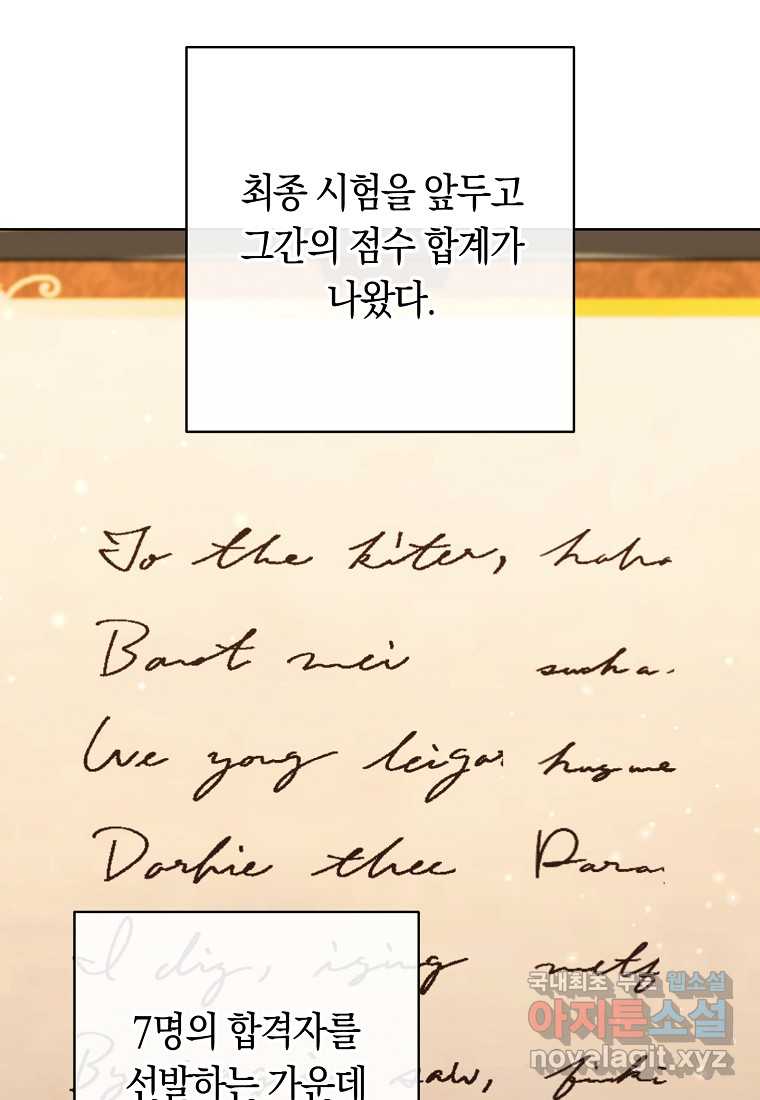 최종 시험을 앞두고
그간의 점수 합계가
나왔다.
To the kiter, haha
Barot mei such a.
We yong leigar hug me
Darhie thee Para
I dig, iging mets
7명의 합격자를
선발하는 가운데
국내최초 무료 웹소설
아지툰소설
novelagit.xyz